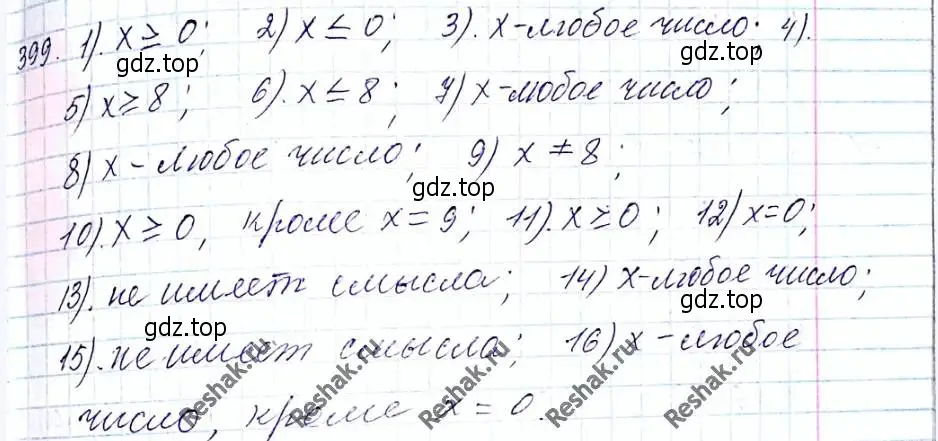 399. 1). x ≥ 0; 2) x ≤ 0; 3). x-любое число; 4).
gdz.top gdz.top gdz.top
5) x ≥ 8; 6). x ≤ 8; 7) x-любое число;
8) x - любое число; 9) x ≠ 8;
gdz.top
10). x ≥ 0, кроме x = 9; 11). x ≥ 0; 12) x=0;
13). не имеет смысла; 14) x-любое число;
gdz.top gdz.top
15). не имеет смысла; 16) x - любое
число, кроме x = 0.
Reshak.ru Reshak.ru Reshak.ru Reshak.ru Reshak.ru